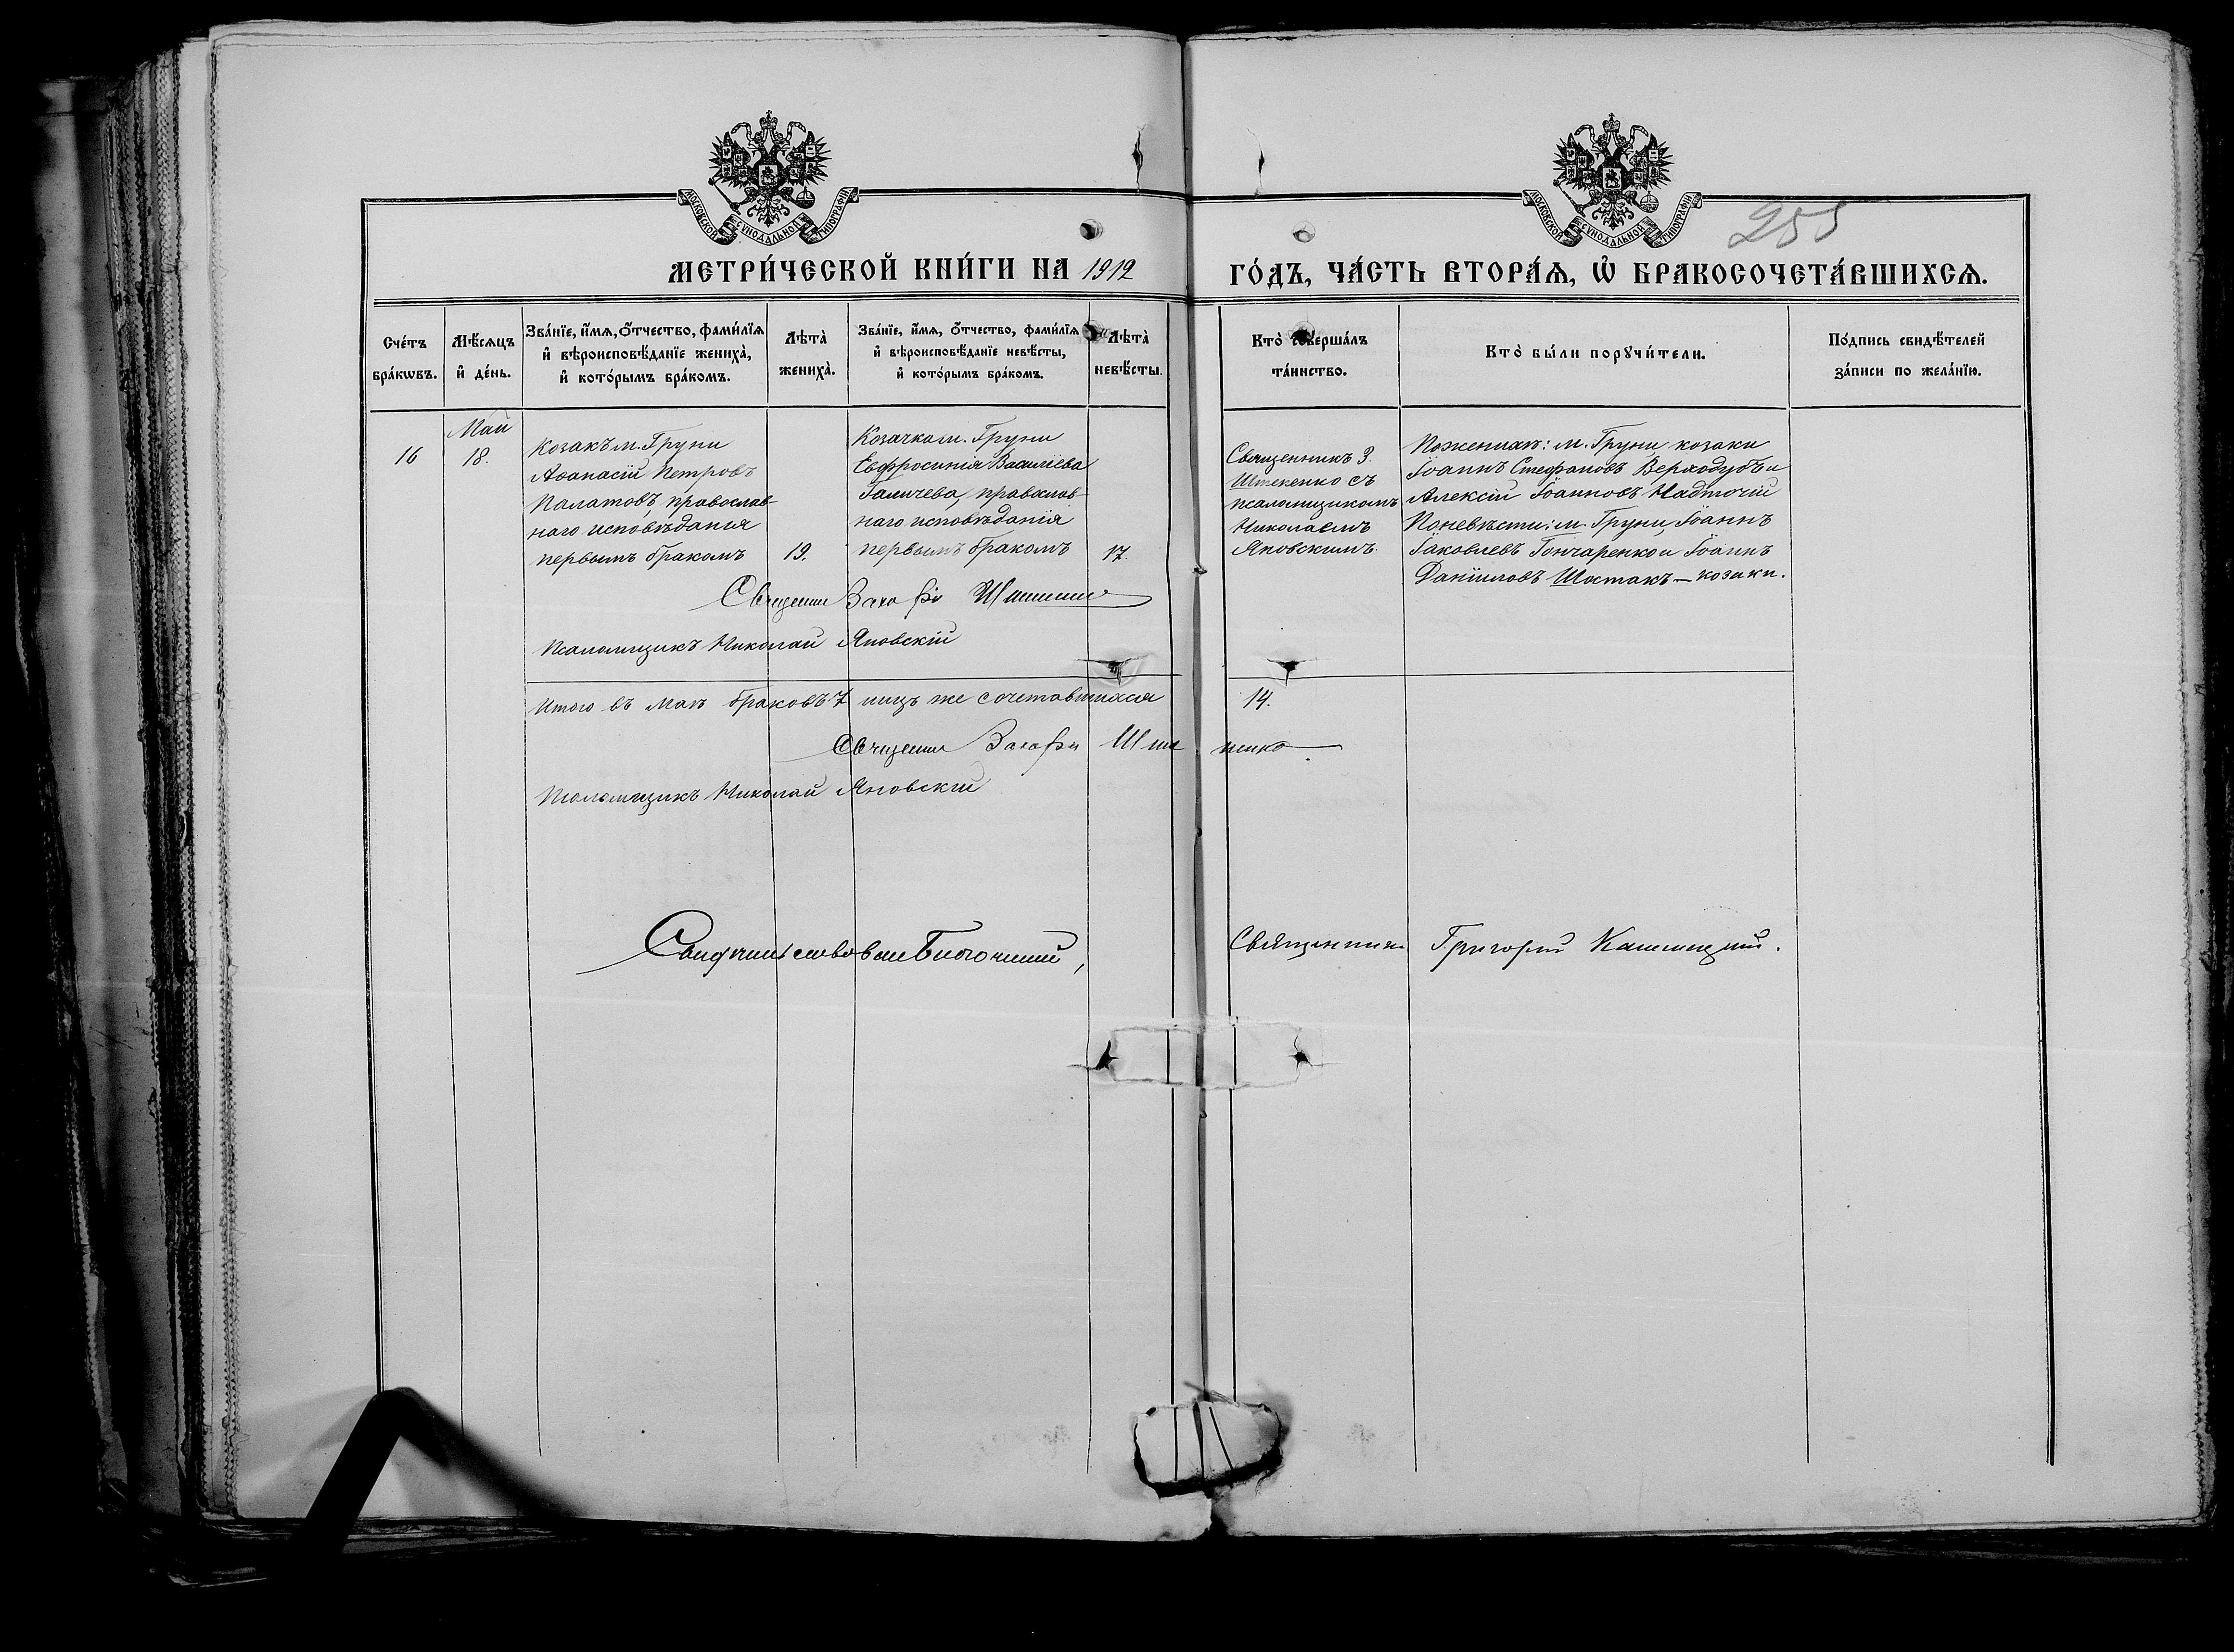 МОСКОВСКОЙ СѴНОДАЛЬНОЙ ТИПОГРАФІИ
МОСКОВСКОЙ СѴНОДАЛЬНОЙ ТИПОГРАФІИ
255
МЕТРИ́ЧЕСКОЙ КНИ́ГИ НА 1912 ГО́ДЪ, ЧА́СТЬ ВТОРА́Ѧ, Ѿ БРАКОСОЧЕТА́ВШИХСѦ.
Сче́тъ
бра́кѡвъ.
Мѣ́сѧцъ
и҆ де́нь.
Зва́нїе, и҆́мѧ, ѻ҆́тчество, фами́лїѧ
и҆ вѣроисповѣ́данїе жениха̀,
и҆ кото́рымъ бра́комъ.
Лѣта̀
жениха̀.
Зва́нїе, и҆́мѧ, ѻ҆́тчество, фами́лїѧ
и҆ вѣроисповѣ́данїе невѣ́сты,
и҆ кото́рымъ бра́комъ.
Лѣта̀
невѣ́сты.
Кто̀ соверша́лъ
та́инство.
Кто̀ бы́ли порꙋчи́тели.
По́дпись свидѣ́телей
за́писи по жела́нїю.
16
Май
18.
Козакъ м. Груни
Аѳанасій Петровъ
Палатовъ, православ-
наго исповѣданія
первымъ бракомъ
19.
Козачка м. Груни
Евфросинія Василіева
Галичева, православ-
наго исповѣданія
первымъ бракомъ
17.
Священникъ З.
Штепенко съ
псаломщикомъ
Николаемъ
Яновскимъ.
По женихѣ: м. Груни, козаки
Іоаннъ Стефановъ Верходубъ и
Алексій Іоанновъ Надточій
По невѣсти: м. Груни, Іоаннъ
Іаковлевъ Гончаренко и Іоаннъ
Даніиловъ Шостакъ — козаки.
Священник Захарій
Псаломщикъ Николай Яновскій
Итого въ Маѣ браковъ 7 лицъ же сочетавшихся 14.
Священник Захарій Штепенко
Псаломщикъ Николай Яновскій
Свидѣтельствовалъ Благочинный, Священник Григорій